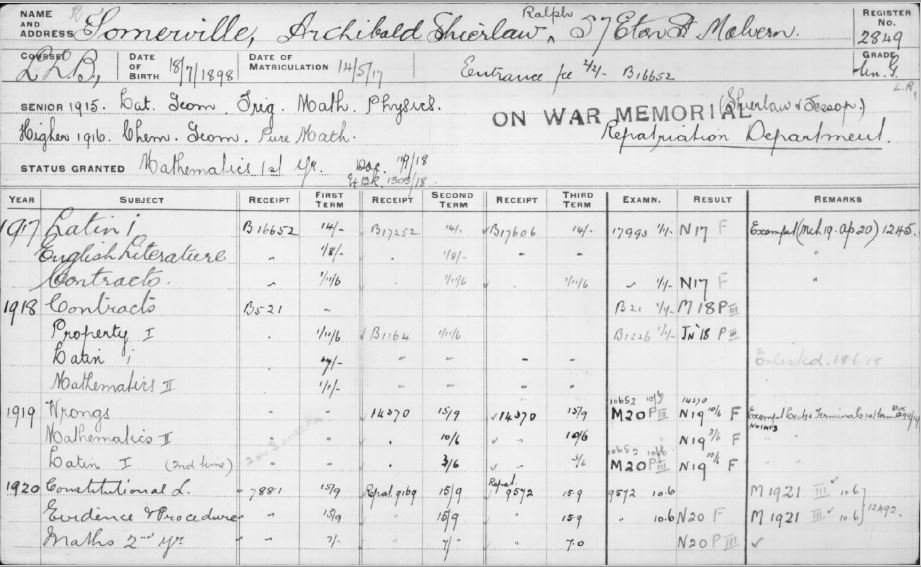 NAME AND ADDRESS R Somerville, Archibald Shierlaw ^ Ralph 57 Eton St Malvern. REGISTER No. 2849
COURSE LL.B., DATE OF BIRTH 18/7/1898 DATE OF MATRICULATION 14/5/17 Entrance fee 2/2/- B16652 GRADE
L.R.
SENIOR 1915. Lat. Geom Trig. Math. Physics. ON WAR MEMORIAL (Shierlaw & Jessop.)
Higher 1916. Chem. Geom. Pure Math. Repatriation Department.
STATUS GRANTED Mathematics 1st yr. Doc. /18
1303/18.
YEAR SUBJECT RECEIPT FIRST TERM RECEIPT SECOND TERM RECEIPT THIRD TERM EXAMN. RESULT REMARKS
1917 Latin i B16652 14/- B17252 14/- B17606 14/- 17993 1/1/- N17 F Exempt (Mch 19. Ap 20) 1245.
English Literature " 1/8/- " 1/8/- "
Contracts. " 1/11/6 " 1/11/6 " 1/11/6 " 1/1/- N17 F
1918 Contracts B521 B21 1/1/- M18 P III
Property I " 1/11/6 B1164 1/11/6 - B1226 1/1/- Jn'18 P III
Latin i 7/- - - - - Enlisted. 18.6.18
Mathematics II 1/1/- " - - "
1919 Wrongs - - 14370 15/9 14370 15/9 10652 10/6 M20 P III 14370 N19 10/6 F Exempt Lects & Terminals
Mathematics II - - " 10/6 " 10/6 N19 3/6 F "
Latin I (2nd time) - - " 3/6 - 3/6 10652 10/6 M20 P III N19 10/6 F "
1920 Constitutional L. 7881 15/9 Repat 9169 15/9 Repat. 9572 15.9 9572 10.6 M 1921 III 10.6
Evidence & Procedure " 15/9 " 15/9 " 15.9 " 10.6 N20 F M 1921 III 10.6 } 12492.
Maths 2nd yr " 7/- " 7/- " 7.0 N20 P III